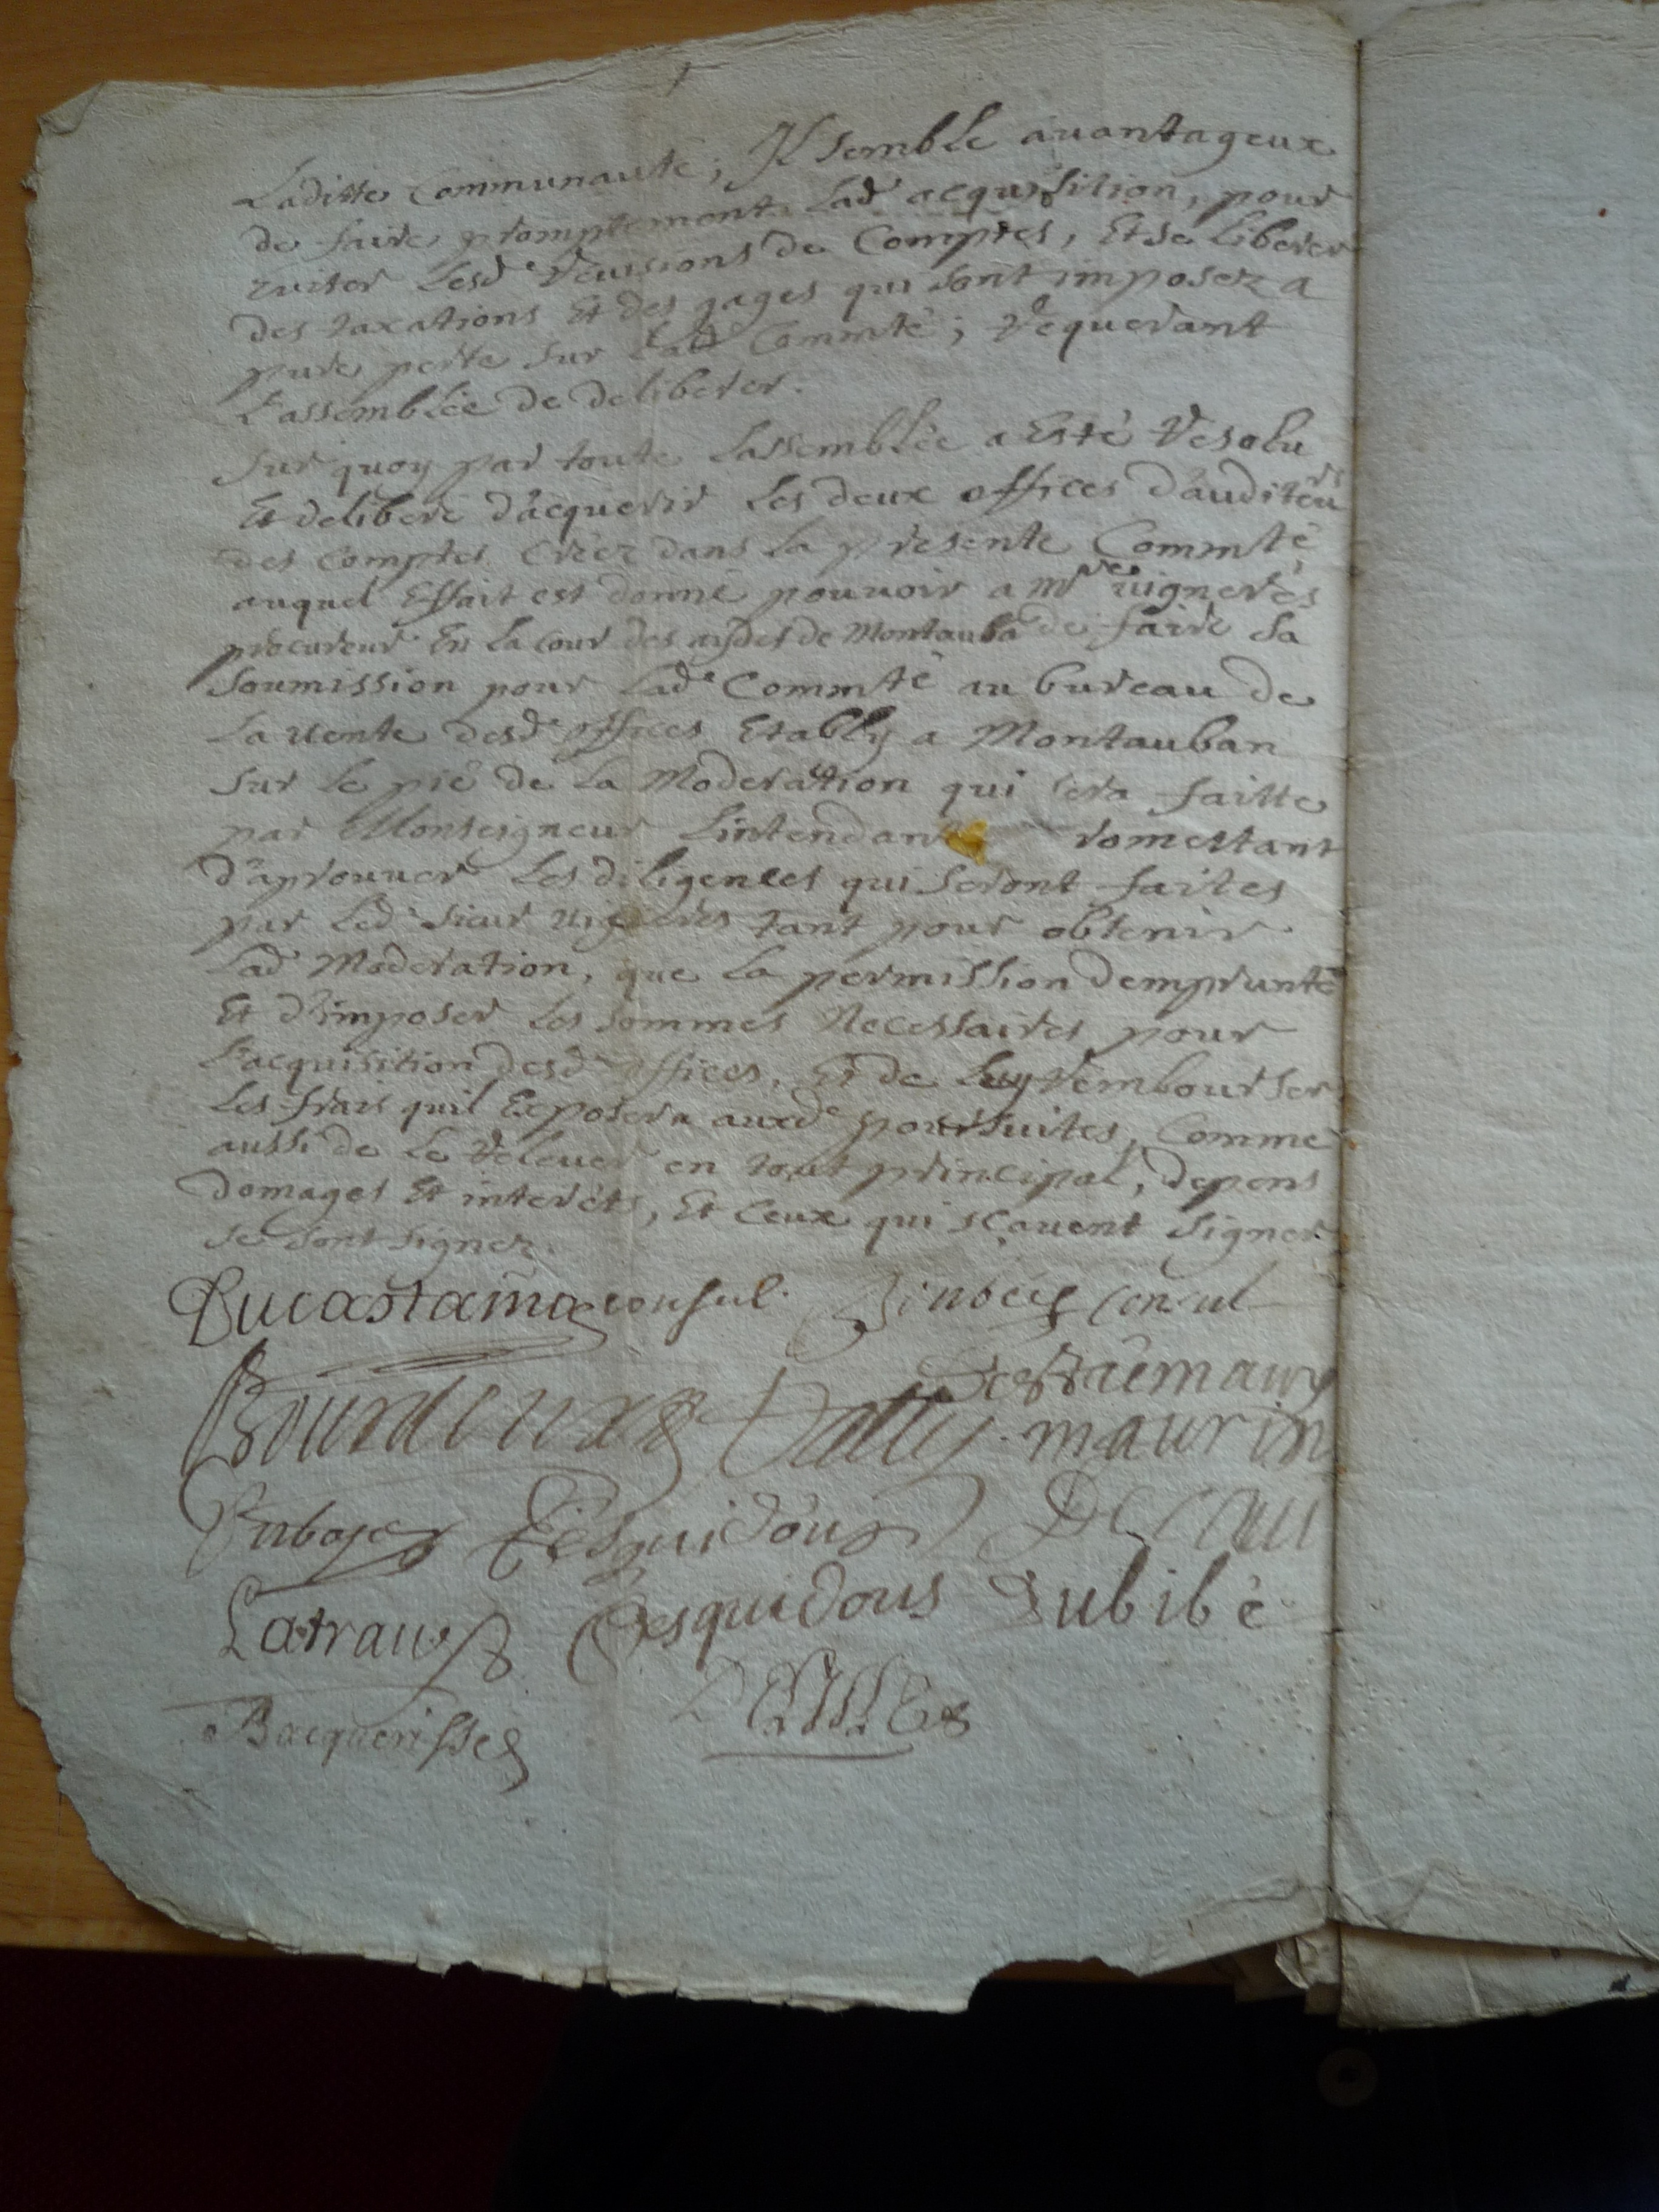 Laditte Communauté; Il semble auantageux
de faire promptement lade acquisition, pour
euiter lesde reuisions de Comptes, Et se liberer
des taxations Et des gages qui sont imposez a
pure perte sur lade Commté; requerant
L'assemblée de deliberer.
Sur quoy par toute lassemblée a Esté resolu
Et deliberé d'acquerir les deux offices d'auditeurs
des comptes Créez dans la presente Commté
auquel Effait est donné pouuoir a mre uignerés
procureur En la cour des aydes de Montauba de faire sa
soumission pour lade Commté au bureau de
la uente desde offices Etably a Montauban
sur le pié de la Moderation qui sera faitte
par Monseigneur Lintendant romettant
d'aprouuer les diligences qui seront faites
par lede sieur uigneres tant pour obtenir
lade Moderation, que la permission demprunter
Et d'imposer les sommes Necessaires pour
l'acquisition desde offices, Et de luy rembourser
les frais quil Exposera auxde poursuites, Comme
aussi de le releuer en tout principal, depens
domages Et interéts, Et ceux qui sçauent signer
se sont signez.
Ducastaing consul. consul
Destremau
Bourdeux Dally. maurin
Dubose Desquidous Decau
Latrau Desquidous Dubibé
Bacquerisse